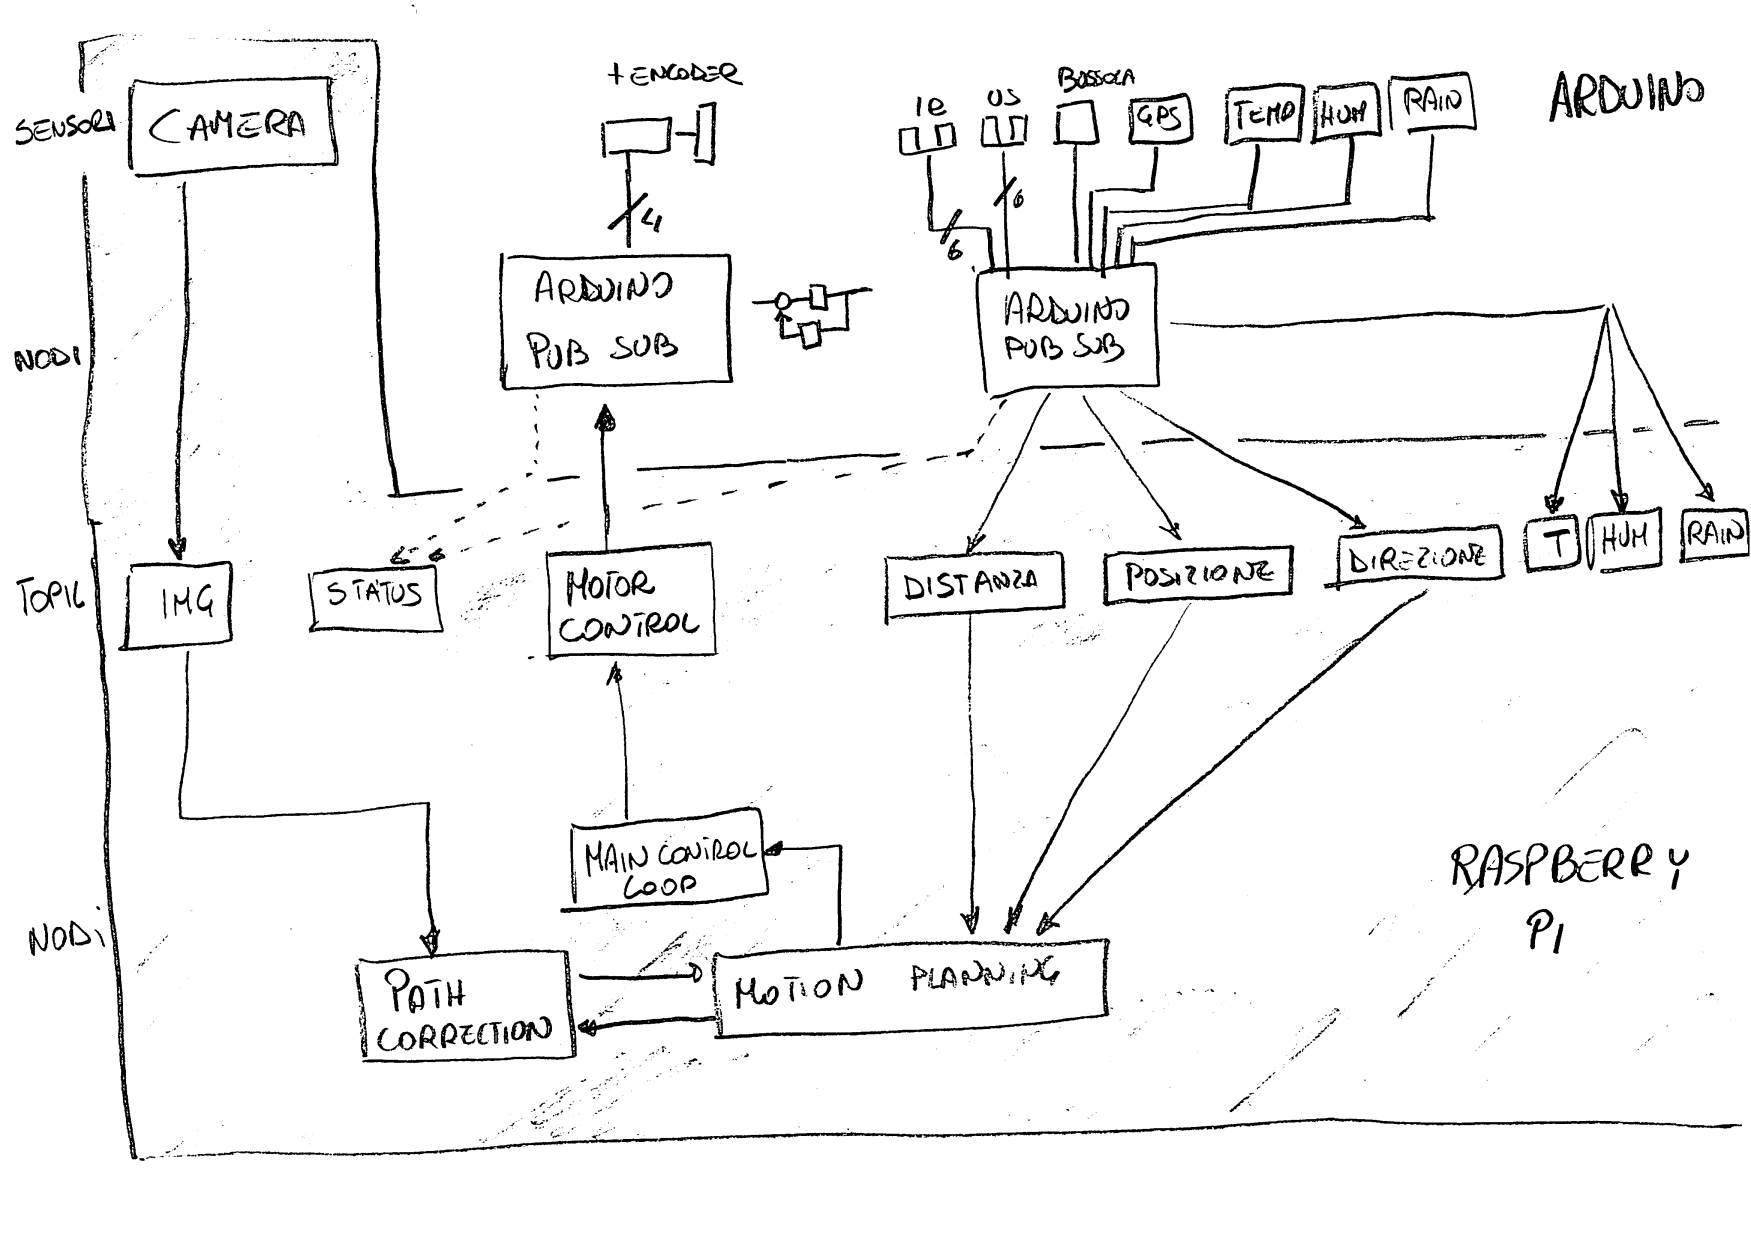 + ENCODER
IR
US
BUSSOLA
GPS
TEMP
HUM
RAIN
ARDUINO
SENSORI
CAMERA
4
6
6
ARDUINO
PUB SUB
ARDUINO
PUB SUB
NODI
TOPIC
IMG
STATUS
MOTOR
CONTROL
DISTANZA
POSIZIONE
DIREZIONE
T
HUM
RAIN
MAIN CONTROL
LOOP
RASPBERRY
PI
NODI
PATH
CORRECTION
MOTION PLANNING